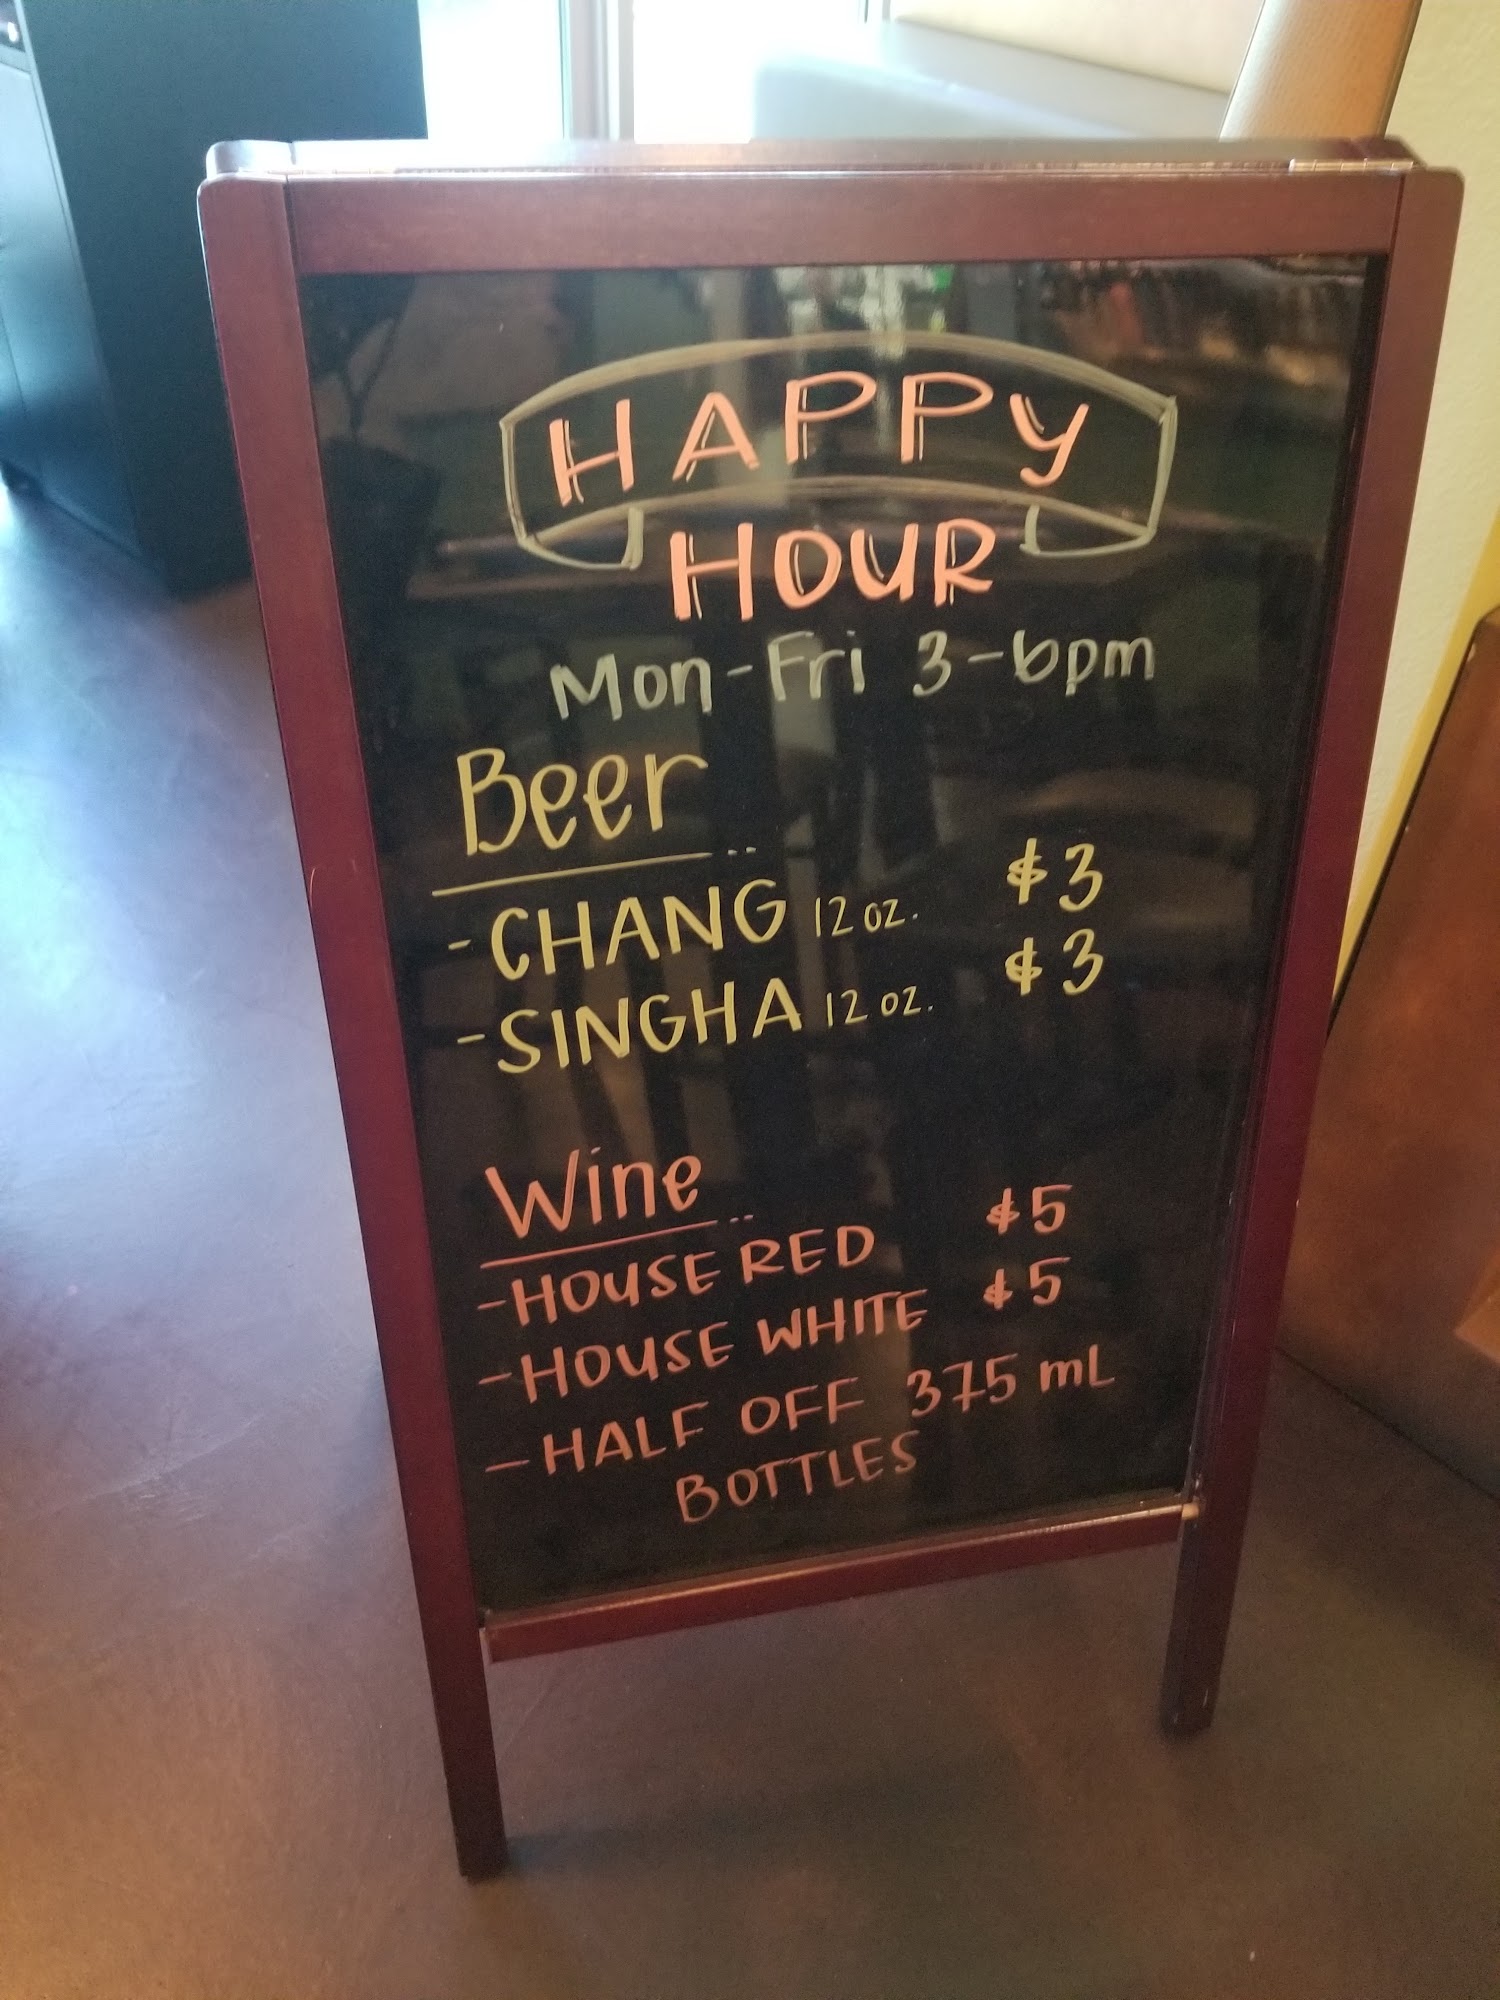 HAPPY
HOUR
Mon-Fri 3-6pm
Beer
-CHANG 12 oz. $3
-SINGHA 12 oz. $3
Wine
-HOUSE RED $5
-HOUSE WHITE $5
-HALF OFF 375 mL
BOTTLES